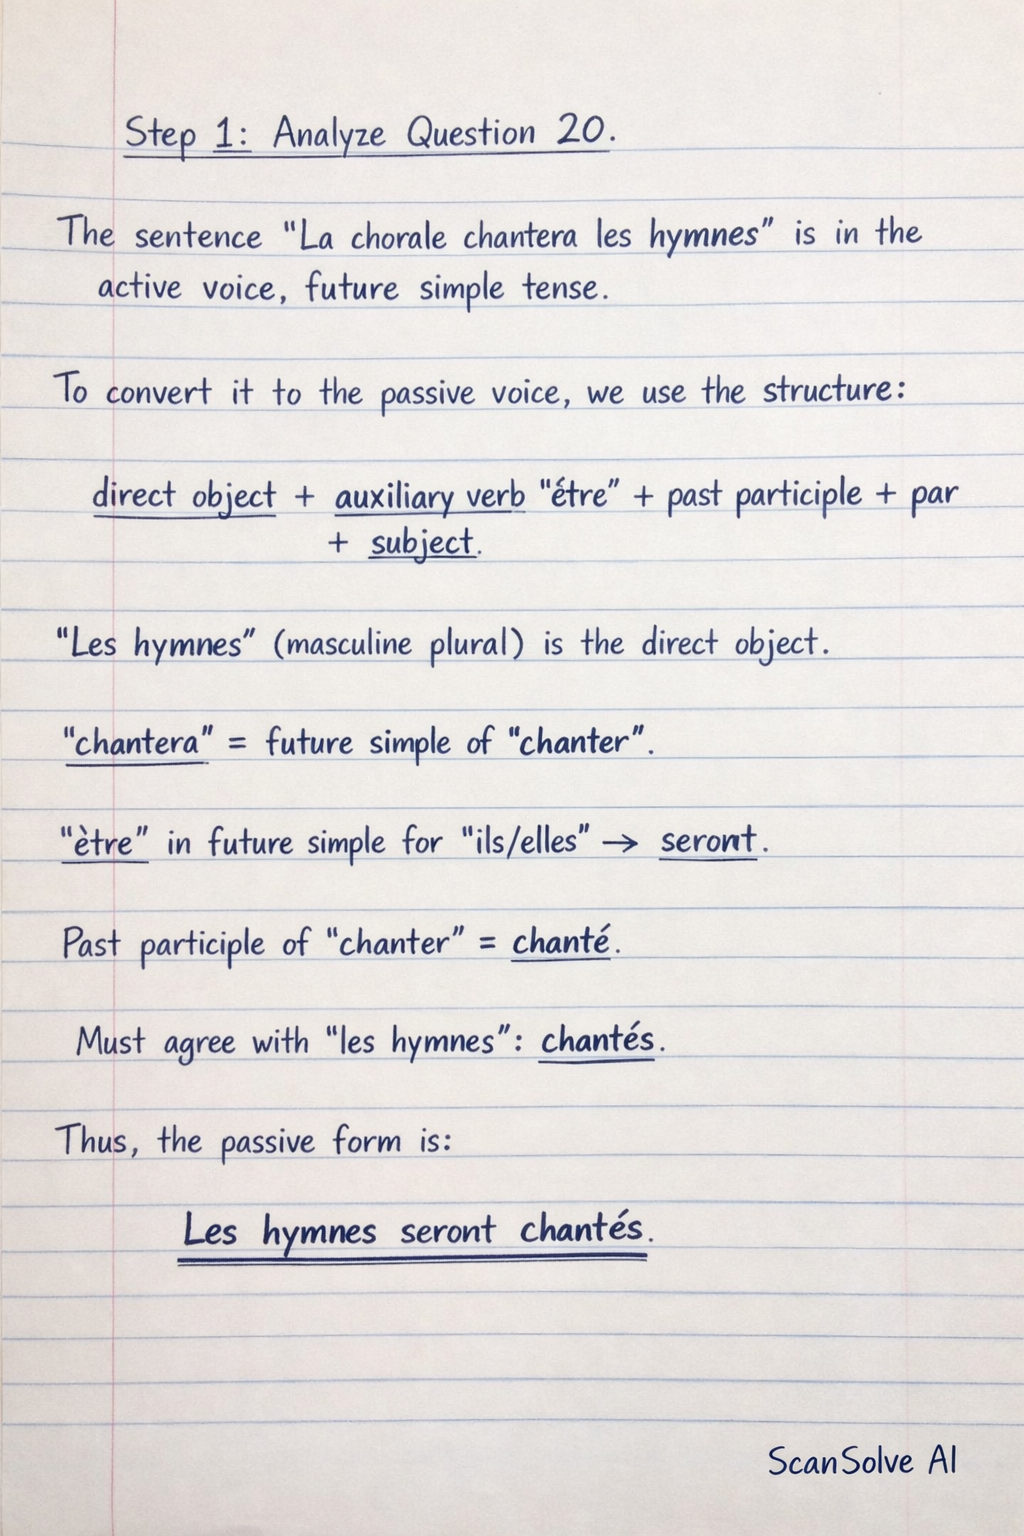 Step 1: Analyze Question 20.
The sentence "La chorale chantera les hymnes" is in the
active voice, future simple tense.
To convert it to the passive voice, we use the structure:
direct object + auxiliary verb "étre" + past participle + par
+ subject.
"Les hymnes" (masculine plural) is the direct object.
"chantera" = future simple of "chanter".
"ètre" in future simple for "ils/elles" → seront.
Past participle of "chanter" = chanté.
Must agree with "les hymnes": chantés.
Thus, the passive form is:
Les hymnes seront chantés.
ScanSolve AI